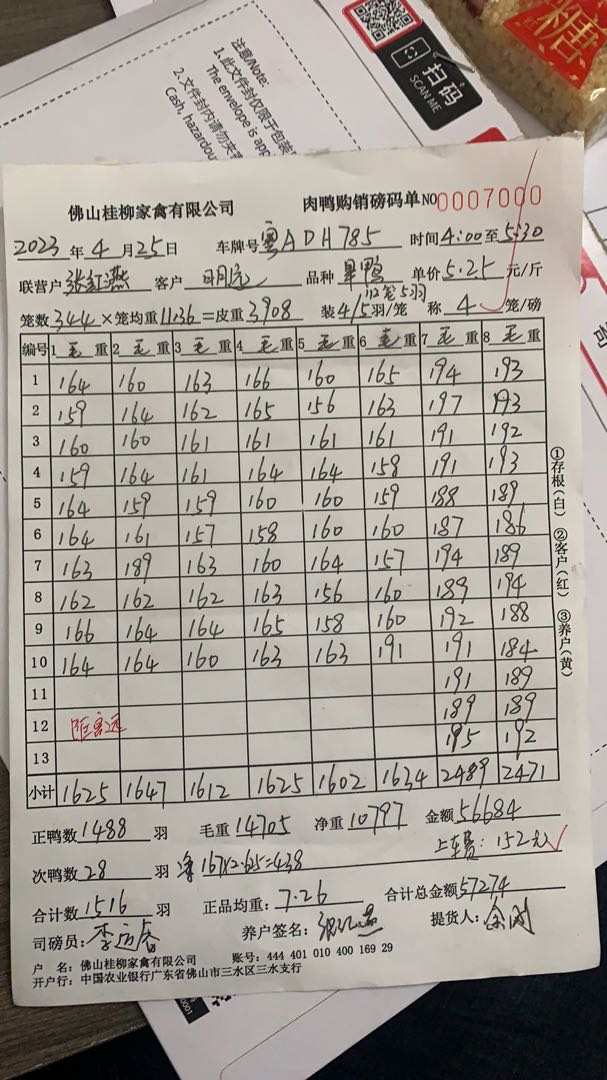 注意/Note:
1.此文件封仅限于包装
The envelope is app
2.文件封内请勿夹
Cash, hazardou
扫码
SCAN ME
糖
佛山桂柳家禽有限公司 肉鸭购销磅码单 NO 0007000
2023 年 4 月 25 日 车牌号 粤ADH785 时间 4:00 至 5:30
联营户 张红燕 客户 品种 单价 5.25 元/斤
5羽
笼数 344 ×笼均重 11.36 =皮重 3908 装 4/5 羽/笼 称 4 笼/磅
编号 1 毛 重 2 毛 重 3 毛 重 4 毛 重 5 毛 重 6 毛 重 7 毛 重 8 毛 重
1 164 160 163 166 160 165 194 193
2 159 164 162 165 156 163 197 193
3 160 160 161 161 161 161 191 192
4 159 164 161 164 164 158 191 193
5 164 159 159 160 160 159 188 189
6 164 161 157 158 160 160 187 186
7 163 189 163 160 164 157 194 189
8 162 162 162 163 156 160 189 194
9 166 164 164 165 158 160 192 188
10 164 164 160 163 163 191 191 184
11 191 189
12 189 189
13 195 192
小计 1625 1647 1612 1625 1602 1634 2489 2471
①存根(白) ②客户(红) ③养户(黄)
正鸭数 1488 羽 毛重 14705 净重 10797 金额 56684
上车费: 152元
次鸭数 28 羽 167X2.625=438
合计数 1516 羽 正品均重: 7.26 合计总金额 57274
司磅员: 养户签名: 提货人:
户 名: 佛山桂柳家禽有限公司 账号: 444 401 010 400 169 29
开户行: 中国农业银行广东省佛山市三水区三水支行